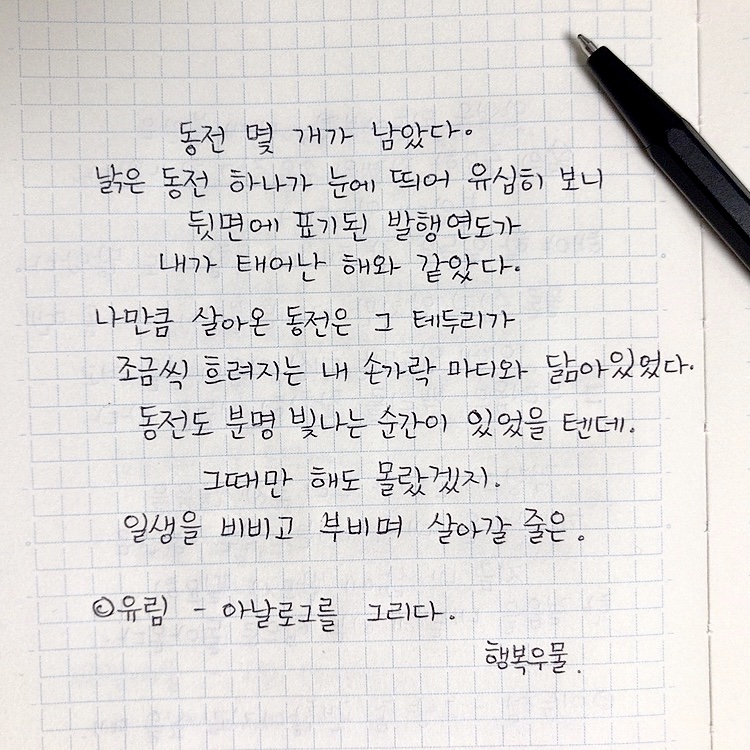 동전 몇 개가 남았다.
낡은 동전 하나가 눈에 띄어 유심히 보니
뒷면에 표기된 발행연도가
내가 태어난 해와 같았다.
나만큼 살아온 동전은 그 테두리가
조금씩 흐려지는 내 손가락 마디와 닮아있었다.
동전도 분명 빛나는 순간이 있었을 텐데.
그때만 해도 몰랐겠지.
일생을 비비고 부비며 살아갈 줄은.
©유림 - 아날로그를 그리다.
행복우물.